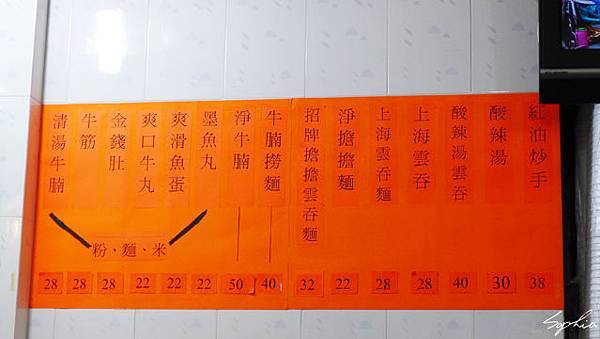 紅油炒手
酸辣湯
酸辣湯雲吞
上海雲吞
上海雲吞麵
淨擔擔麵
招牌擔擔雲吞麵
牛腩撈麵
淨牛腩
墨魚丸
爽滑魚蛋
爽口牛丸
金錢肚
牛筋
清湯牛腩
粉、麵、米
28 28 28 22 22 22 50 40 32 22 28 28 40 30 38
Sophia